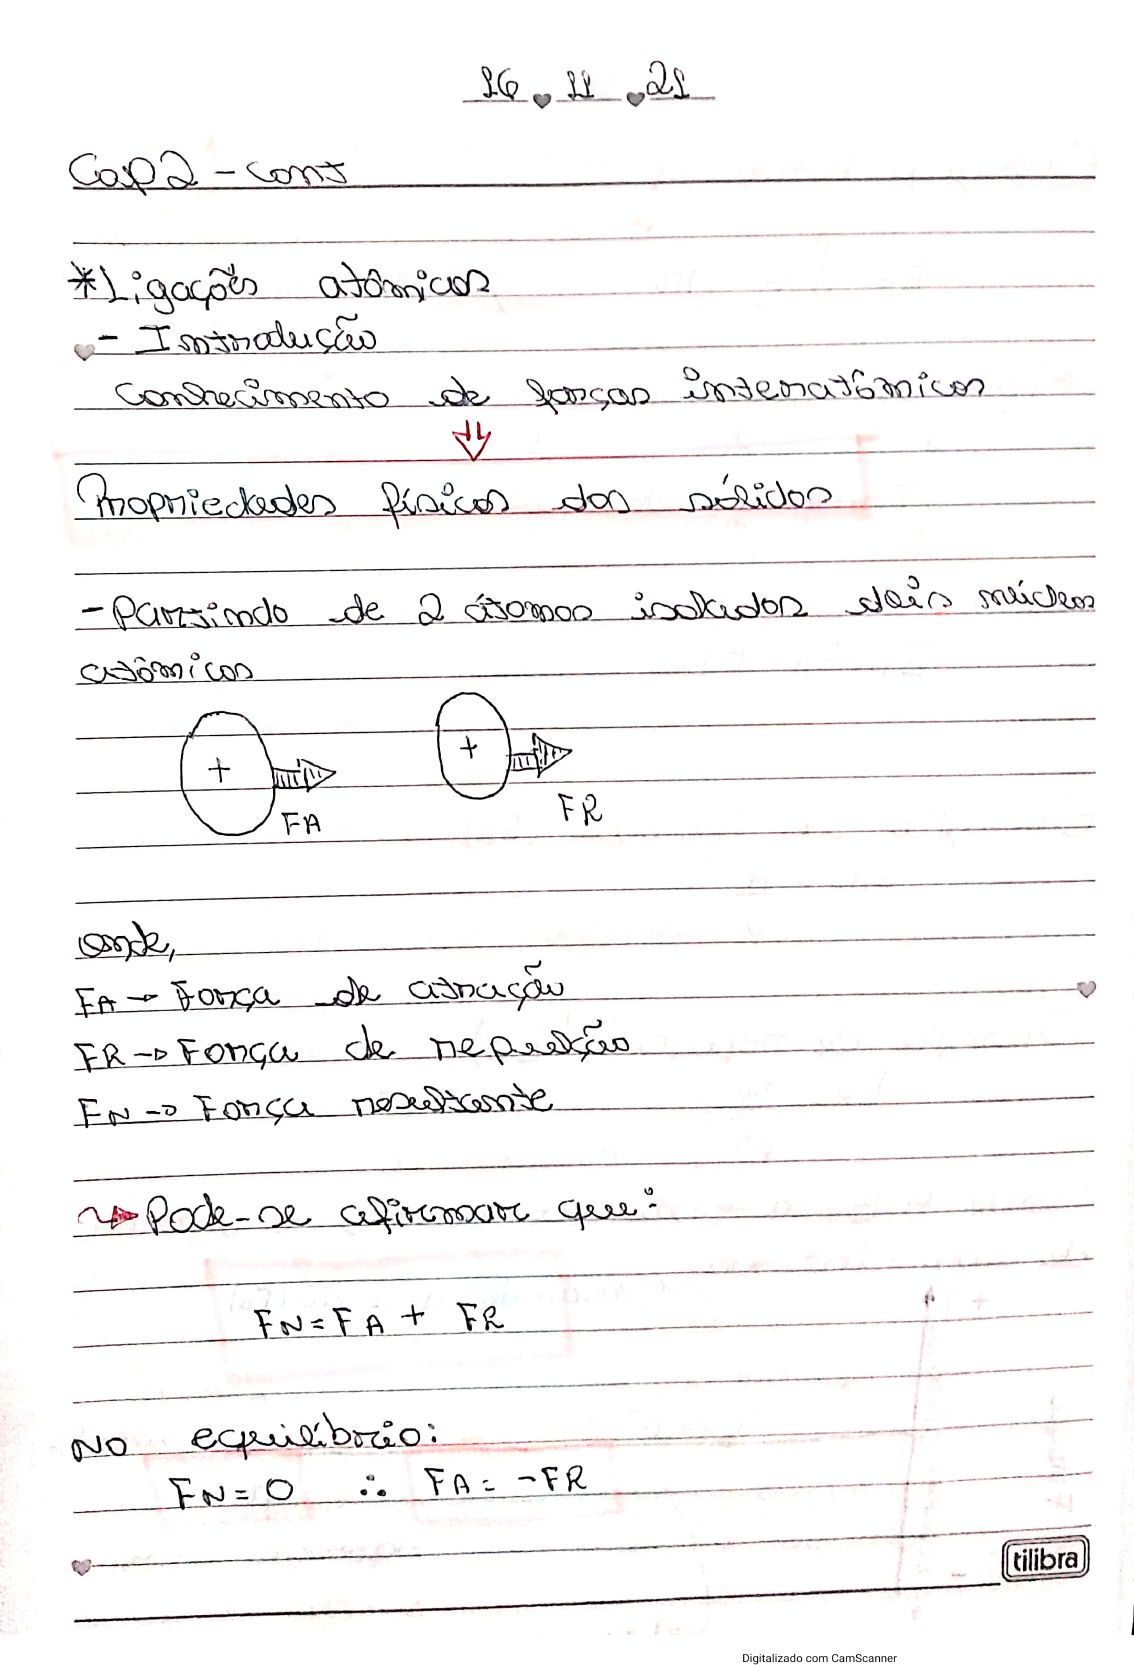 16.11.21
Cap 2 - cont
*Ligações atômicas
- Introdução
Conhecimento de forças interatômicas
Propriedades físicas dos sólidos
- Partindo de 2 átomos isolados dois núcleos
atômicos
+ +
FA FR
onde,
FA → Força de atração
FR → Força de repulsão
FN → Força resultante
Pode-se afirmar que:
FN = FA + FR
No equilíbrio:
FN = 0 ∴ FA = -FR
tilibra
Digitalizado com CamScanner